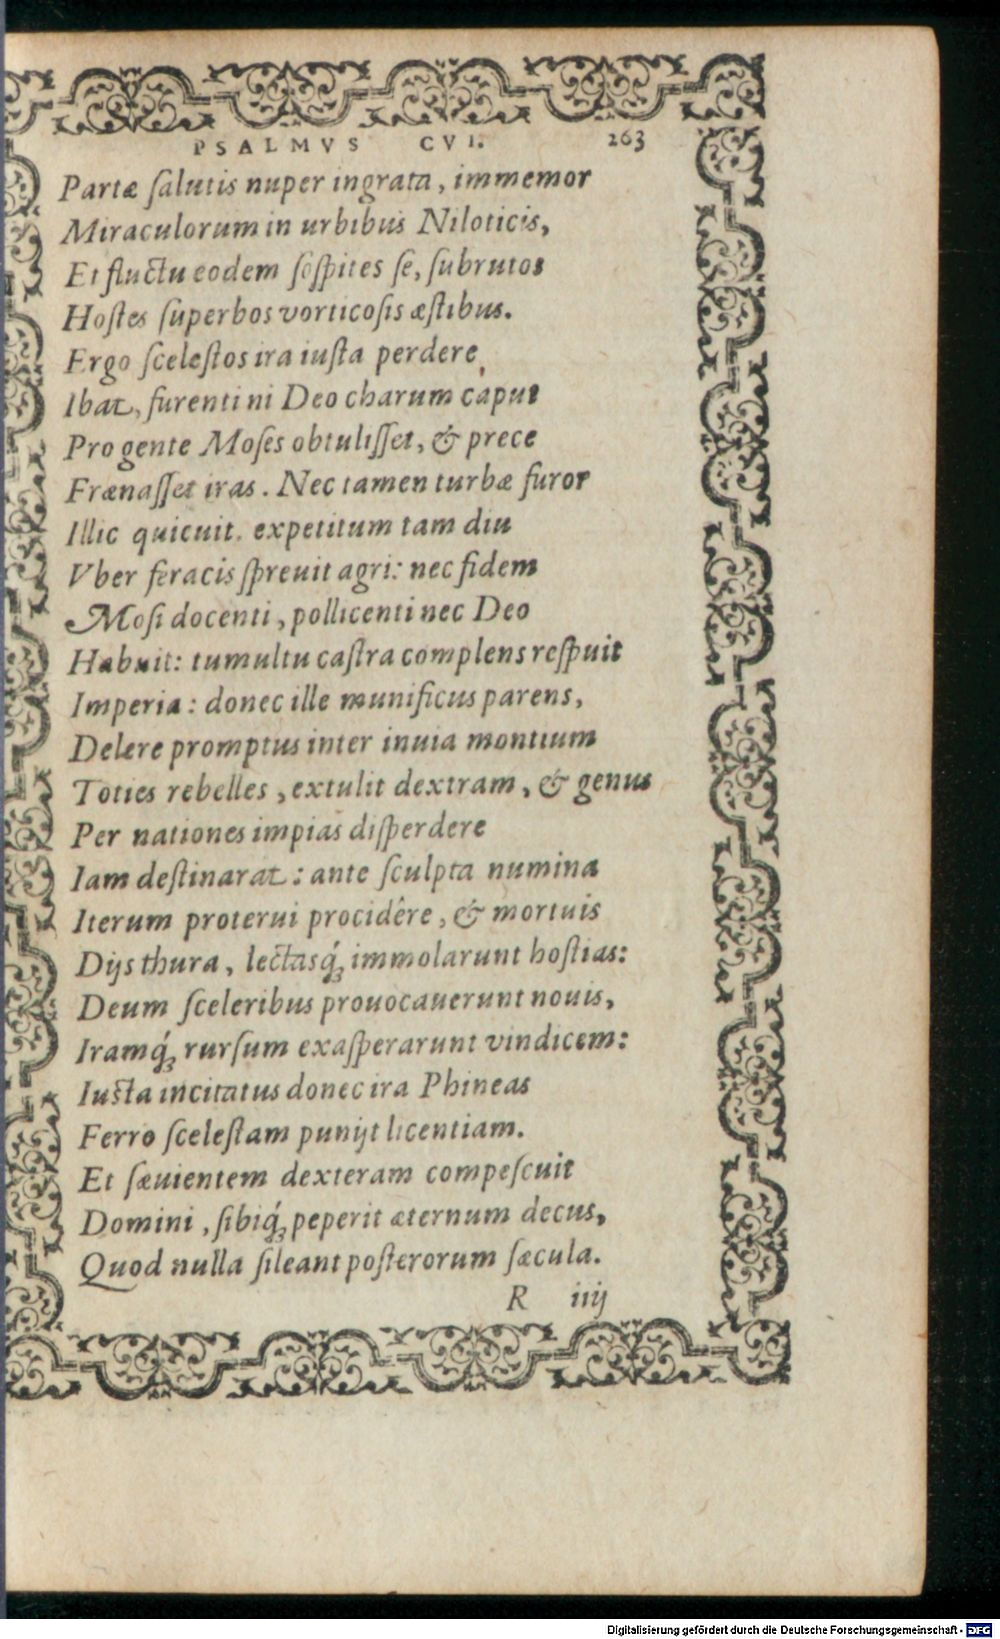 PSALMVS CVI. 263
Partæ ſalutis nuper ingrata, immemor
Miraculorum in urbibus Niloticis,
Et fluctu eodem ſoſpites ſe, ſubrutos
Hoſtes ſuperbos vorticoſis æſtibus.
Ergo ſceleſtos ira iuſta perdere
Ibat, furenti ni Deo charum caput
Pro gente Moſes obtuliſſet, & prece
Frænaſſet iras. Nec tamen turbæ furor
Illic quieuit. expetitum tam diu
Vber feracis ſpreuit agri: nec fidem
Moſi docenti, pollicenti nec Deo
Habuit: tumultu caſtra complens reſpuit
Imperia: donec ille munificus parens,
Delere promptus inter inuia montium
Toties rebelles, extulit dextram, & genus
Per nationes impias diſperdere
Iam deſtinarat: ante ſculpta numina
Iterum proterui procidêre, & mortuis
Dijs thura, lectasq́ꝫ immolarunt hoſtias:
Deum ſceleribus prouocauerunt nouis,
Iramq́ꝫ rurſum exaſperarunt vindicem:
Iusta incitatus donec ira Phineas
Ferro ſceleſtam punijt licentiam.
Et ſæuientem dexteram compeſcuit
Domini, ſibiq́ꝫ peperit æternum decus,
Quod nulla ſileant poſterorum ſæcula.
R iiij
Digitalisierung gefördert durch die Deutsche Forschungsgemeinschaft - DFG